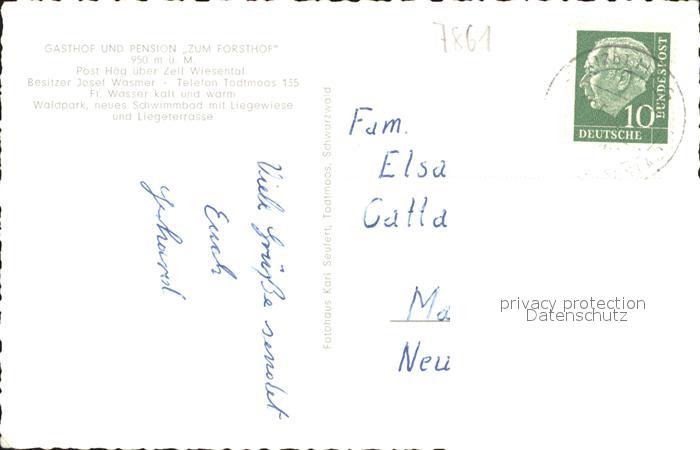 7861
GASTHOF UND PENSION „ZUM FORSTHOF"
950 m ü. M.
Post Häg über Zell Wiesental
Besitzer Josef Wasmer - Telefon Todtmoos 135
Fl. Wasser kalt und warm
Waldpark, neues Schwimmbad mit Liegewiese
und Liegeterrasse
Viele Grüße sendet
Euch
Gerhard
Fotohaus Karl Seufert, Todtmoos, Schwarzwald
10
DEUTSCHE
BUNDESPOST
Fam.
Elsa
Catta
Ma
Neu
privacy protection
Datenschutz